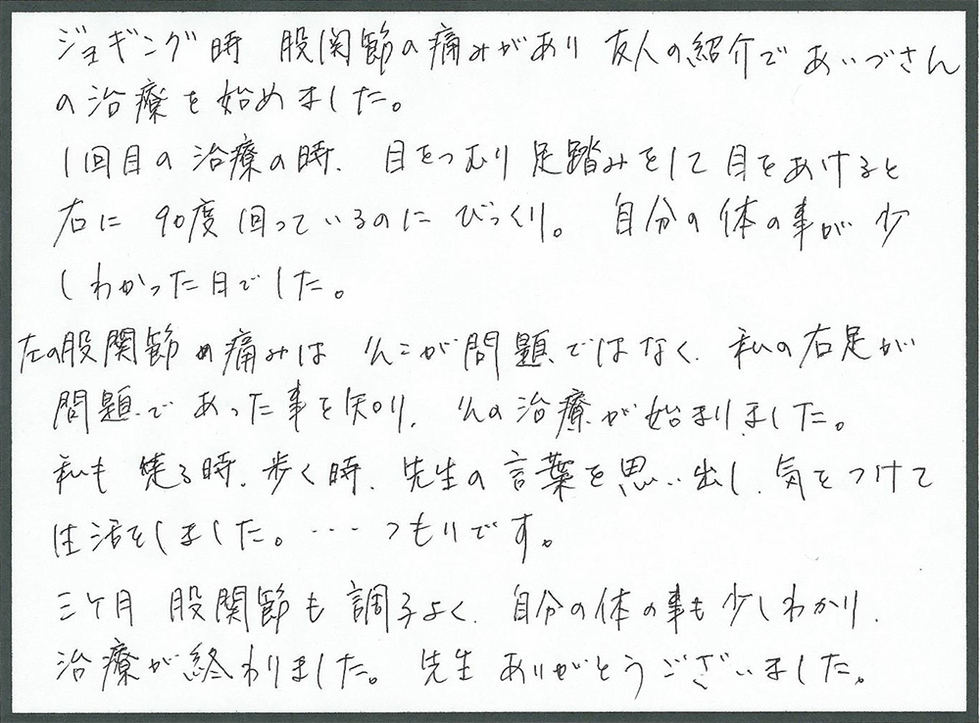 ジョギング時 股関節の痛みがあり 友人の紹介で あいづさん
の治療を始めました。
1回目の治療の時、目をつむり足踏みをして目をあけると
右に 90度回っているのに びっくり。 自分の体の事が 少
しわかった日でした。
左の股関節の痛みは そこが問題ではなく、私の右足が
問題であった事を知り、その治療が始まりました。
私も 走る時、歩く時、先生の言葉を思い出し、気をつけて
生活をしました。・・・つもりです。
三ケ月 股関節も調子よく、自分の体の事も少しわかり、
治療が終わりました。 先生 ありがとうございました。